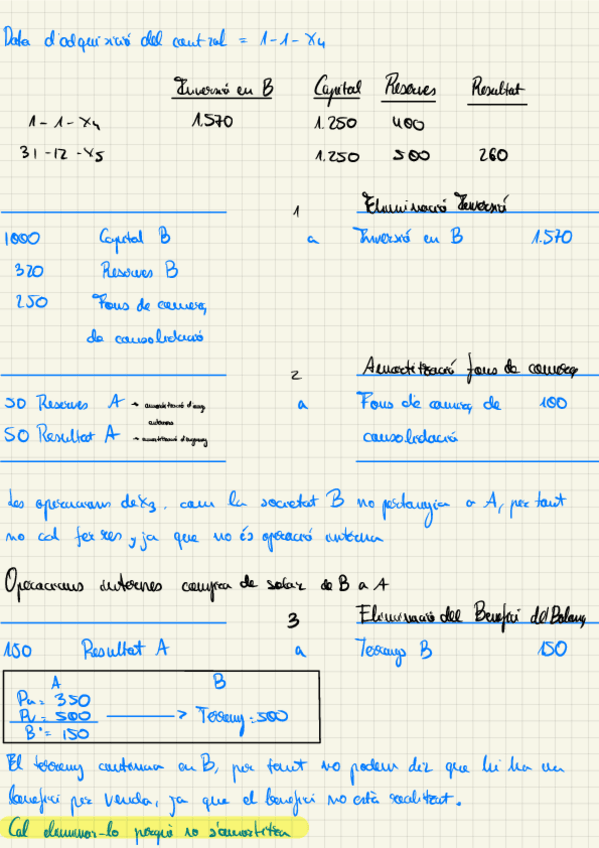 Data d'adquisició del control = 1-1-X4
Inversió en B Capital Reserves Resultat
1-1-X4 1.570 1.250 400
31-12-X5 1.250 500 260
1 Eliminació Inversió
1000 Capital B a Inversió en B 1.570
320 Reserves B
250 Fons de comerç
de consolidació
2 Amortització fons de comerç
50 Reserves A → amortització d'any a Fons de comerç de 100
anteriors
50 Resultat A → amortització d'enguany consolidació
Les operacions de X3, com la societat B no pertanyia a A, per tant
no cal fer res, ja que no és operació interna
Operacions internes compra de solar de B a A
3 Eliminació del Benefici del Balanç
150 Resultat A a Terreny B 150
A B
Pa = 350
Pv = 500 → Terreny = 500
Bº = 150
El terreny continua en B, per tant no podem dir que hi ha un
benefici per venda, ja que el benefici no està realitzat.
Cal eliminar-lo perquè no s'amortitza